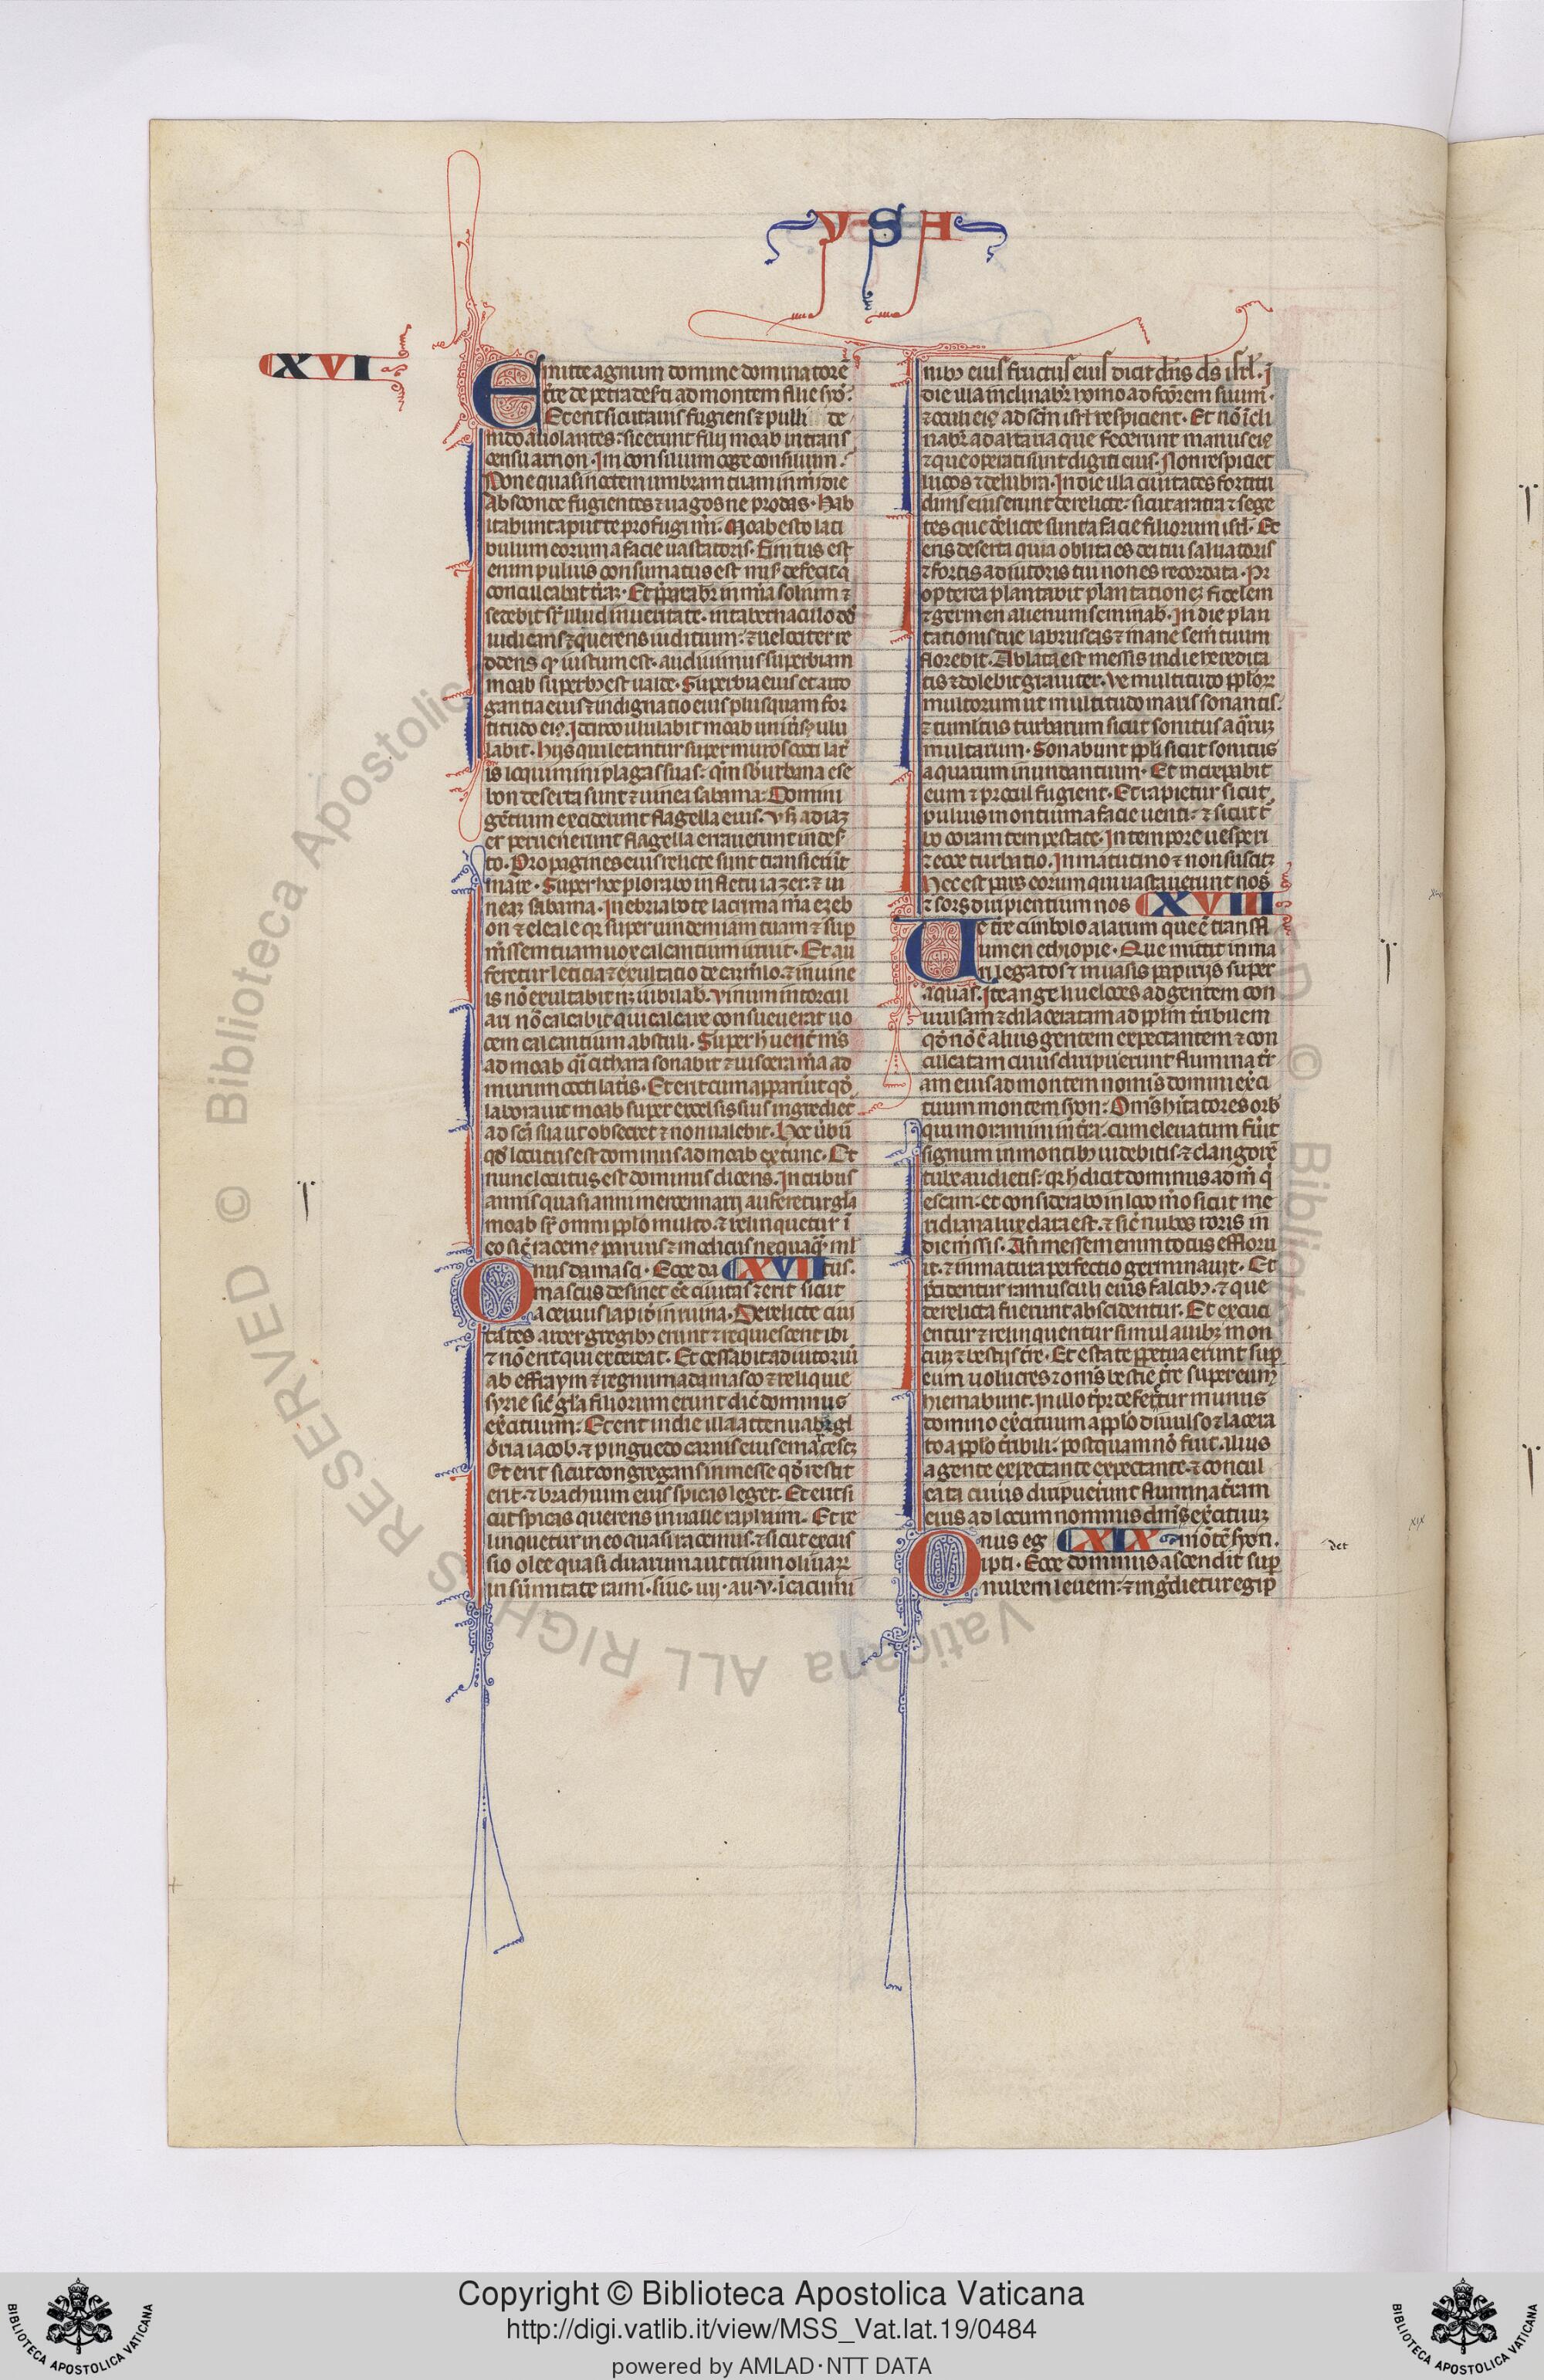 YSA
XVI
Emitte agnum domine dominatorẽ
t̃re de petra des̃ti ad montem filie syõ.
Et erit sicut auis fugiens ⁊ pulli de
nido auolantes: sic erunt filij moab in trans
censu arnon. Ini consilium coge consilium.
Pone quasi noctem umbram tuam in m̃idie
Absconde fugientes ⁊ uagos ne prodas. Hab
itabunt aput te profugi m̃i. Moab esto lati
bulum eorum a facie uastatoris. Finitus est
enim puluis consumatus est mis̃ defecit q̃
conculcabat t̃raꝫ. Et p̃parabit̃ in mĩa solium ⁊
sedebit sr̃ illud in ueritate. in tabernaculo dd̃
iudicans ⁊ querens iuditium: ⁊ uelociter re
ddens qđ iustum est. audiuimus superbiam
moab superbꝰ est ualde. Superbia eius et arro
gantia eius ⁊ indignatio eius plusquam for
titudo eiꝰ. Idcirco ululabit moab uniũs̃ꝰ ulu
labit. hijs qui letantur super muros cocti lat̃
is loquimini plagas suas: qm̃ sburbana ese
bon deserta sunt ⁊ uinea sabama: Domini
gẽtium exciderunt flagella eius. Vsꝗ ad iaz
er peruenerunt flagella errauerunt in des̃
to. Propagines eius relicte sunt transierũt
mare. Super hoc plorabo in fletu iazer. ⁊ ui
neaꝫ sabama. Inebriabo te lacrima m̃a ezeb
on ⁊ eleale qꝛ super uindemiam tuam ⁊ sup
m̃ssem tuam uox calcantium irruit. Et au
feretur leticia ⁊ exultatio de carm̃lo. ⁊ in uine
is nõ exultabit nꝫ iubilab. Vinum in torcul
ari nõ calcabit qui calcare consueuerat uo
cem calcantium abstuli. Super h̃ uent̃ m̃s
ad moab q̃i cithara sonabit ⁊ uiscera m̃a ad
murum cocti lat̃is. Et erit cum apparu̾it qđ
laborauit moab super excelsis suis ingrediet̃
ad sc̃a sua ut obsecret ⁊ non ualebit. Hoc ũbũ
qđ locutus est dominus ad moab ex tunc. Et
nunc locutus est dominus dicens. In tribus
annis quasi anni mercennarij auferetur gl̃a
moab sr̃ omni pp̃lo multo. ⁊ relinquetur ĩ
eo sic̃ racemꝰ paruus ⁊ modicus nequaq̃ ml̃
Onus damasci. Ecce da XVII tus.
mascus desinet eẽ ciuitas ⁊ erit sicut
aceruus lapidũ in ruina. Derelicte ciui
tates aroer gregibꝰ erunt ⁊ requiescent ibi
⁊ nõ erit qui exterreat. Et cessabit adiutoriũ
ab effraym ⁊ regnum a damasco ⁊ reliquie
syrie sic̃ gl̃a filiorum erunt dic̃ dominus
exc̃ituum: Et erit in die illa attenuabit̃ gl
oria iacob. ⁊ pinguedo carnis eius emarcescꝫ
Et erit sicut congregans in messe qđ restit
erit. ⁊ brachium eius spicas leget. Et erit si
cut spicas querens in ualle raphaim. Et re
linquetur in eo quasi racemus. ⁊ sicut excus
sio olee quasi duarum aut trium oliuaꝝ
in sũmitate rami. siue. iiij. au. v. ĩ cacumi
nibꝰ eius fructus eius dicit dñs ds̃ isrl̃. I
die illa inclinabit̃ homo ad fc̃orem suum.
⁊ occuli eiꝰ ad sc̃m isrl̃ respicient. Et nõ ĩcli
nabit̃ ad altaria que fecerunt manus eiꝰ
⁊ que operati sunt digiti eius. Non respiciet
lucos ⁊ delubra. In die illa ciuitates fortitu
dinis eius erunt derelicte: sicut aratra ⁊ sege
tes que d̃elicte sunt a facie filiorum isrl̃. Et
eris deserta quia oblita es dei tui saluatoris
⁊ fortis adiutoris tui non es recordata. Pr
opterea plantabit plantationeꝫ fidelem
⁊ germen alienum seminab. In die plan
tationis tue labruscas ⁊ mane sem̃ tuum
florebit. Ablata est messis in die heredita
tis ⁊ dolebit grauiter. Ve multitudo pp̃loꝝ
multorum ut multitudo maris sonantis.
⁊ tumltus turbarum sicut sonitus aq̃ruꝫ
multarum. Sonabunt pp̃li sicut sonitus
aquarum inundantium. Et increpabit
eum ⁊ procul fugient. Et rapietur sicut
puluis montium a facie uenti. ⁊ sicut t̃
bo coram tempestate. In tempore uesperi
⁊ ecce turbatio. In matutino ⁊ non subsistꝫ
Hec est pars eorum qui uastauerunt nos
⁊ sors diripientium nos XVIII
Ue t̃re cimbolo alarum que ẽ trans fl
umen ethiopie. Que mittit in ma
ri legatos ⁊ in uasis papirijs super
aquas. Ite angeli ueloces ad gentem con
uulsam ⁊ dilaceratam ad pp̃lm t̃ribilem
pꝰ quẽ nõ ẽ alius gentem expectantem ⁊ con
culcatam cuius diripuerunt flumina t̃r
am eius ad montem nominis domini exc̃i
tuum montem syon: Om̃s hitatores orb
qui moramini in t̃ra. cum eleuatum fũit
signum in montibꝰ uidebitis. ⁊ clangorẽ
tube audietis: qꝛ h̃ dicit dominus ad m̃ q̃
escam. et considerabo in loco m̃o sicut me
ridiana lux clara est. ⁊ sic̃ nubes roris in
die m̃ssis. An̄ messem enim totus efflorũ
it. ⁊ immatura perfectio germinauit. Et
p̃cidentur ramusculi eius falcibꝰ. ⁊ que
derelicta fuerunt abscidentur. Et excuci
entur ⁊ relinquentur simul auibꝰ mon
tiuꝫ ⁊ bestijs t̃re. Et estate perpetua erunt sup
eum uolucres ⁊ om̃s bestie t̃re super eum
hiemabunt. In illo t̃pr̃ deferetur munus
domino exc̃ituum a pp̃lo diuulso ⁊ lacera
to a pp̃lo t̃ribili. postquam nõ fuit alius
a gente expectante expectante. ⁊ concul
cata cuius diripuerunt flumina t̃ram
eius ad locum nominis dñi exc̃ituuꝫ
Onus eg XIX mõtẽ syon.
ipti. Ecce dominus ascendit sup
nubem leuem. ⁊ ingr̃dietur egip
xix
Copyright © Biblioteca Apostolica Vaticana
http://digi.vatlib.it/view/MSS_Vat.lat.19/0484
powered by AMLAD·NTT DATA
BIBLIOTECA APOSTOLICA VATICANA
BIBLIOTECA APOSTOLICA VATICANA
© Biblioteca Apostolica Vaticana ALL RIGHTS RESERVED
© Biblioteca